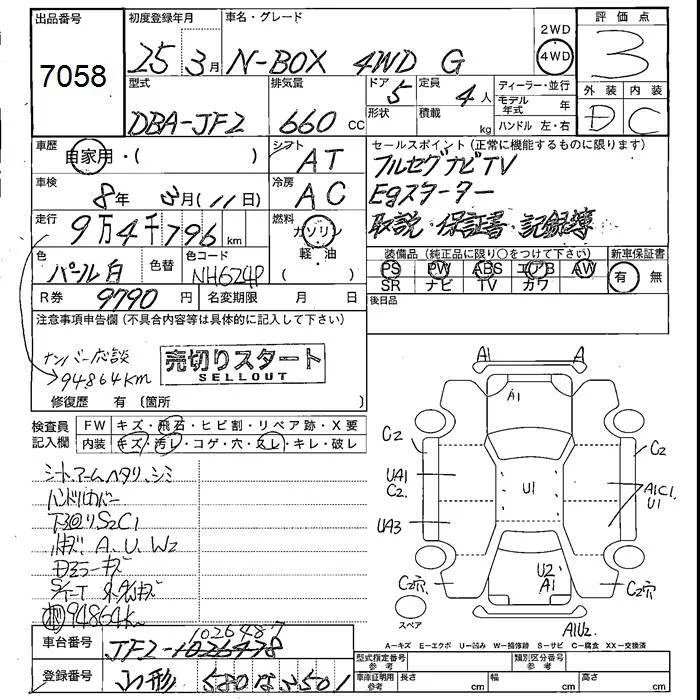 出品番号
7058
初度登録年月
25 3月
車名・グレード
N-BOX 4WD G
2WD
4WD
評価点
3
外装 内装
D C
型式
DBA-JF2
排気量
660 CC
ドア 5
形状
定員 4人
積載 kg
ディーラー・並行
モデル年式 年
ハンドル 左・右
車歴
自家用・( )
シフト
AT
車検
8年 3月(11日)
冷房
AC
走行
9万4千796 km
燃料
ガソリン
軽・油
( )
色
パール白
色替
色コード
NH624P
R券 9790円
名変期限 月 日
セールスポイント(正常に機能するものに限ります)
フルセグナビTV
Egスターター
取説・保証書・記録簿
装備品(純正品に限り○をつけて下さい)
PS PW ABS エアB AW
SR ナビ TV カワ
新車保証書
有 無
後日品
注意事項申告欄(不具合内容等は具体的に記入して下さい)
ナンバー応談
→94864km
売切りスタート
SELLOUT
修復歴 有(箇所 )
検査員記入欄
FW キズ・飛石・ヒビ割・リペア跡・X要
内装 キズ・汚レ・コゲ・穴・スレ・キレ・破レ
シートアームヘタリ、シミ
ハンドルカバー
下回りS2C1
A、U、W2
94864km
A1 A
A1
C2 C2
UA1
C2
U1
A1C1
U1
UA3
U2
A1
C2穴 C2穴
A1U2
スペア
A=キズ E=エクボ U=凹み W=補修跡 S=サビ C=腐食 XX=交換済
車台番号
1026487
JF2-1026478
登録番号
山形 580 す 3501
型式指定番号 参考
類別区分番号 参考
車庫証明用 参考
長さ cm
幅 cm
高さ cm